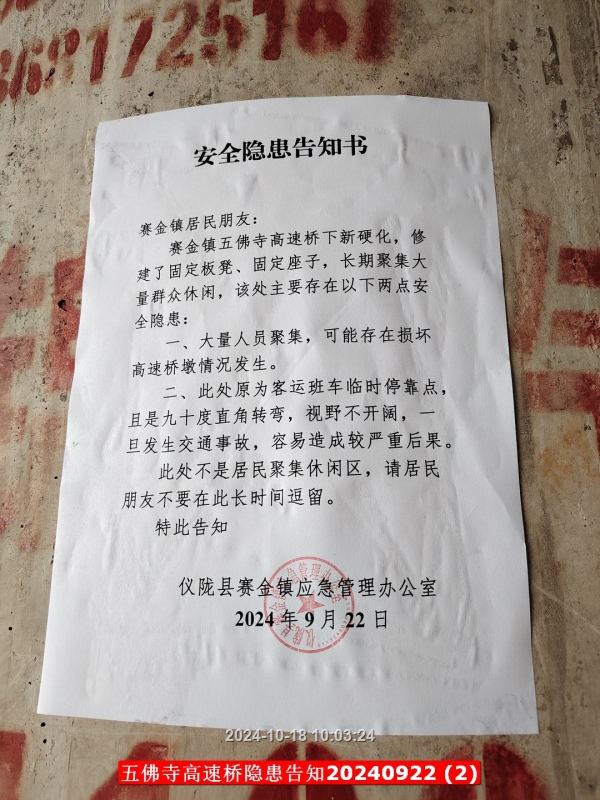 3681725161
安全隐患告知书
赛金镇居民朋友：
赛金镇五佛寺高速桥下新硬化，修
建了固定板凳、固定座子，长期聚集大
量群众休闲，该处主要存在以下两点安
全隐患：
一、大量人员聚集，可能存在损坏
高速桥墩情况发生。
二、此处原为客运班车临时停靠点，
且是九十度直角转弯，视野不开阔，一
旦发生交通事故，容易造成较严重后果。
此处不是居民聚集休闲区，请居民
朋友不要在此长时间逗留。
特此告知
仪陇县赛金镇应急管理办公室
2024 年 9 月 22 日
2024-10-18 10:03:24
五佛寺高速桥隐患告知20240922 (2)